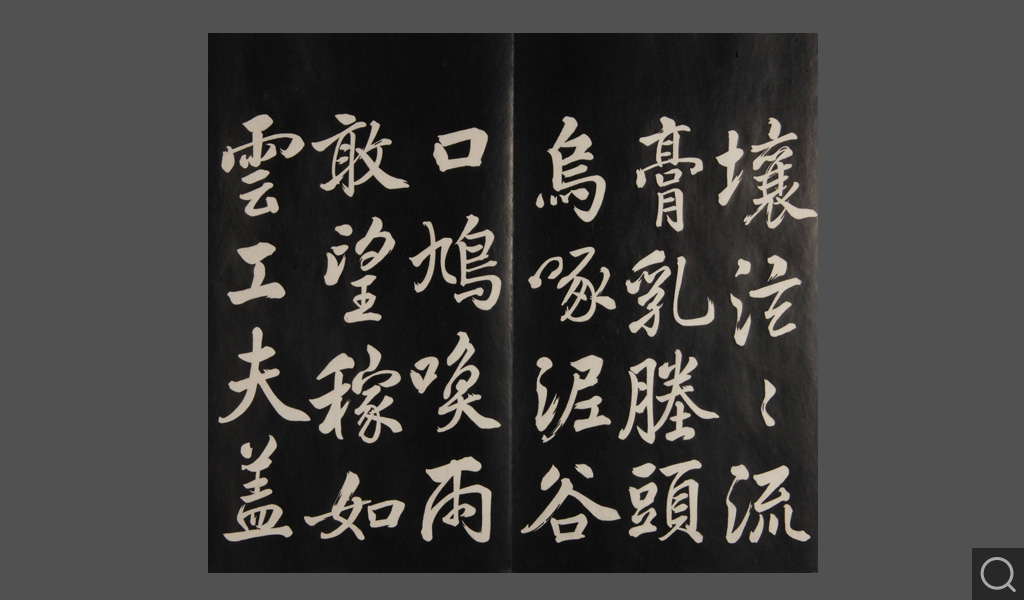 壤泣〻流
膏乳塍頭
烏啄泥谷
口鳩喚雨
敢望稼如
雲工夫盖